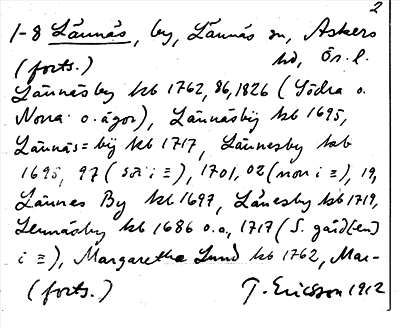 2
1-8 Lännäs, by, Lännäs sn, Askers
(forts.) hd, Ör. l.
Lännäsby kb 1762, 86, 1826 (Södra o.
Norra o. ägor), Lännäsbÿ kb 1695,
Lännäs=bÿ kb 1717, Lännesby kb
1695, 97 (sö i =), 1701, 02 (nor i =), 19,
Lännes By kb 1697, Länesby kb 1719,
Lennäsby kb 1686 o.a., 1717 (S. gård[en]
i =), Margaretha Lund kb 1762, Mar-
(forts.) T. Ericsson 1912